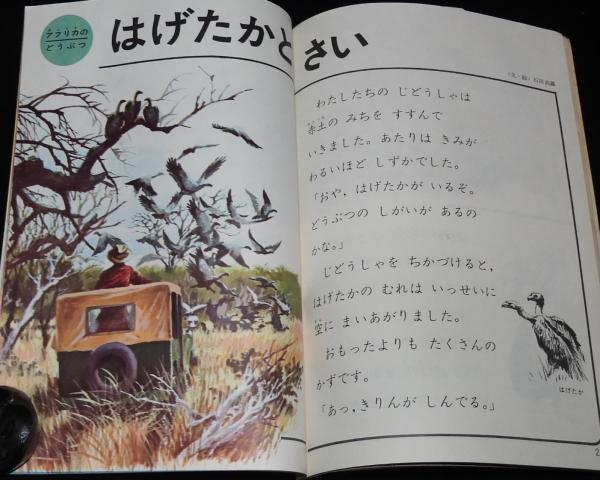 アフリカの
どうぶつ
はげたかとさい
わたしたちの じどうしゃは
赤土の みちを すすんで
いきました。あたりは きみが
わるいほど しずかでした。
「おや，はげたかが いるぞ。
どうぶつの しがいが あるの
かな。」
じどうしゃを ちかづけると，
はげたかの むれは いっせいに
空に まいあがりました。
おもったよりも たくさんの
かずです。
「あっ，きりんが しんでる。」
はげたか
2